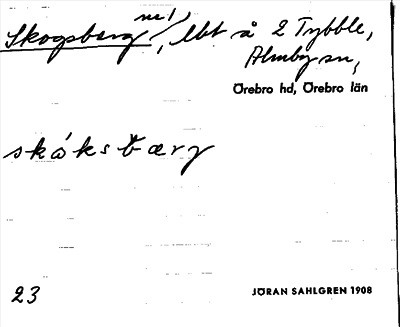 Skogsberg nr 1, lht å 2 Tybble,
Almby sn,
Örebro hd, Örebro län
skȯksbæry
23
JÖRAN SAHLGREN 1908